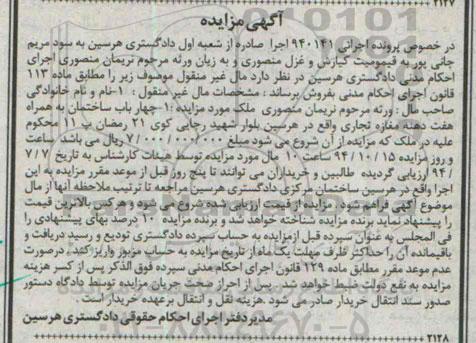 ۲۱۲۷
آگهی مزایده
در خصوص پرونده اجرائی ۹۴۰۱۴۱ اجرا صادره از شعبه اول دادگستری هرسین به سود مریم
جانی پور به قیمومیت کیارش و غزل منصوری و به زیان ورثه مرحوم نریمان منصوری اجرای
احکام مدنی دادگستری هرسین در نظر دارد مال غیر منقول موصوف زیر را مطابق ماده ۱۱۳
قانون اجرای احکام مدنی بفروش برساند : مشخصات مال غیر منقول : ۱-نام و نام خانوادگی
صاحب مال : ورثه مرحوم نریمان منصوری ملک مورد مزایده :۱ چهار باب ساختمان به همراه
هفت دهنه مغازه تجاری واقع در هرسین بلوار شهید رجایی کوی ۲۱ رمضان پ ۱۱ محکوم
علیه در ملک که مزایده از آن شروع می شود مبلغ ۷/۰۰۰/۰۰۰/۰۰۰ ریال می باشد. ساعت
و روز مزایده ۹۴/۱۰/۱۵ ساعت ۱۰ مال مورد مزایده توسط هیئات کارشناس به تاریخ ۷/۷
/۹۴ ارزیابی گردیده طالبین و خریداران می توانند تا پنج روز قبل از موعد مقرر مزایده به این
اجرا واقع در هرسین ساختمان مرکزی دادگستری هرسین مراجعه تا ترتیب ملاحظه آنها از مال
موضوع آگهی فراهم شود . مزایده از قیمت ارزیابی شده شروع می شود و هرکس بالاترین قیمت
را پیشنهاد نماید برنده مزایده شناخته خواهد شد و برنده مزایده ۱۰ درصد بهای پیشنهادی را
فی المجلس به عنوان سپرده قبل ازمزایده به حساب سپرده دادگستری تودیع و رسید دریافت و
باقیمانده آن را حداکثر ظرف مهلت یک ماه از تاریخ مزایده به حساب مزبور واریز کند . درصورت
عدم موعد مقرر مطابق ماده ۲۲۹ قانون اجرای احکام مدنی سپرده فوق الذکر پس از کسر هزینه
مزایده به نفع دولت ضبط خواهد شد. پس از احراز صحت جریان مزایده توسط دادگاه دستور
صدور سند انتقال خریدار صادر می شود .هزینه نقل و انتقال برعهده خریدار است .
مدیر دفتر اجرای احکام حقوقی دادگستری هرسین
۲۱۲۸